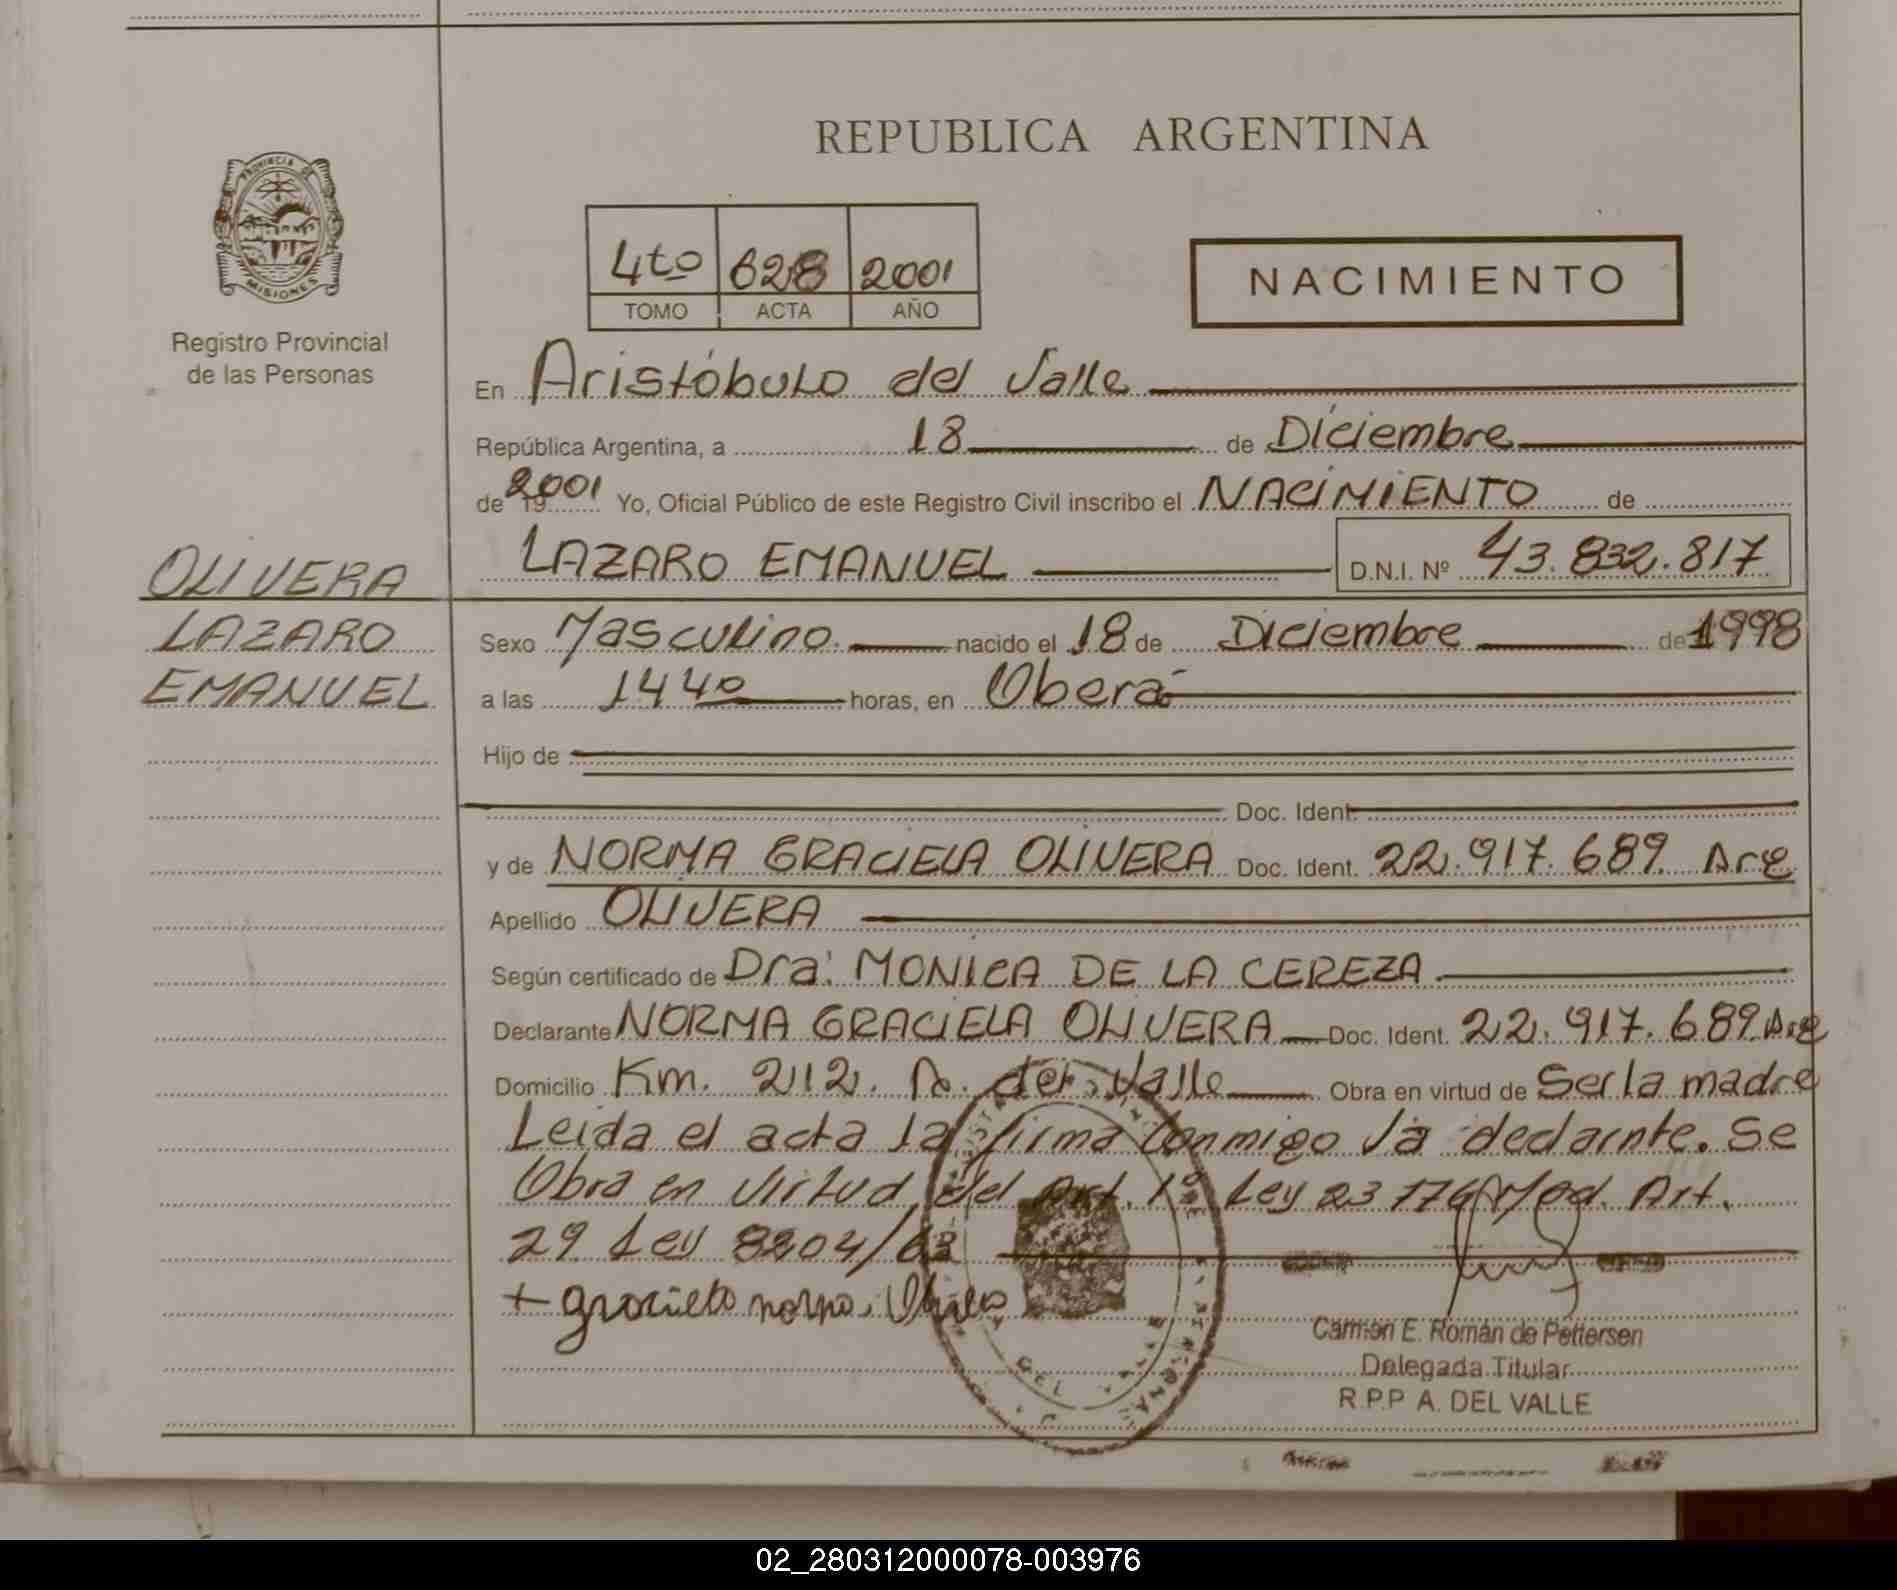 REPUBLICA ARGENTINA
PROVINCIA DE
MISIONES
Registro Provincial
de las Personas
4to 628 2001
TOMO ACTA AÑO
NACIMIENTO
En Aristóbulo del Valle
República Argentina, a 18 de Diciembre
de 2001 19 Yo, Oficial Público de este Registro Civil inscribo el NACIMIENTO de
LAZARO EMANUEL D.N.I. Nº 43.832.817
OLIVERA
LAZARO
EMANUEL
Sexo Masculino. nacido el 18 de Diciembre de 1998
a las 14 40 horas, en Oberá
Hijo de
Doc. Ident.
y de NORMA GRACIELA OLIVERA Doc. Ident. 22.917.689. Arg
Apellido OLIVERA
Según certificado de Dra: MONICA DE LA CEREZA
Declarante NORMA GRACIELA OLIVERA Doc. Ident. 22.917.689. Arg
Domicilio Km. 212. A. del Valle Obra en virtud de Ser la madre
Leida el acta la firma Conmigo la declarnte. Se
Obra en virtud del Art. 1º Ley 23 176 Mod. Art.
29 Ley 8204/63
+ norma
Carmen E. Román de Pettersen
Delegada Titular
R.P.P A. DEL VALLE
02_280312000078-003976